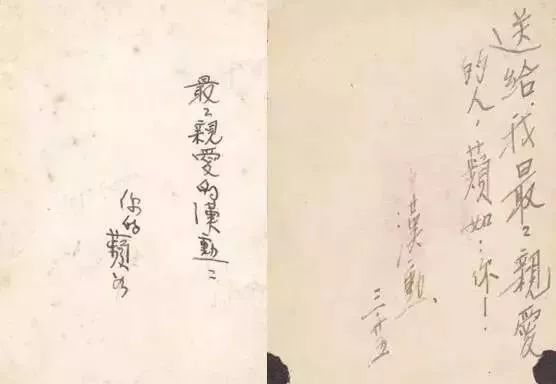 最〻親愛的漢勳：
你的蘋如
送给我最〻親愛
的人，蘋如：你！
漢勳、
三、廿五